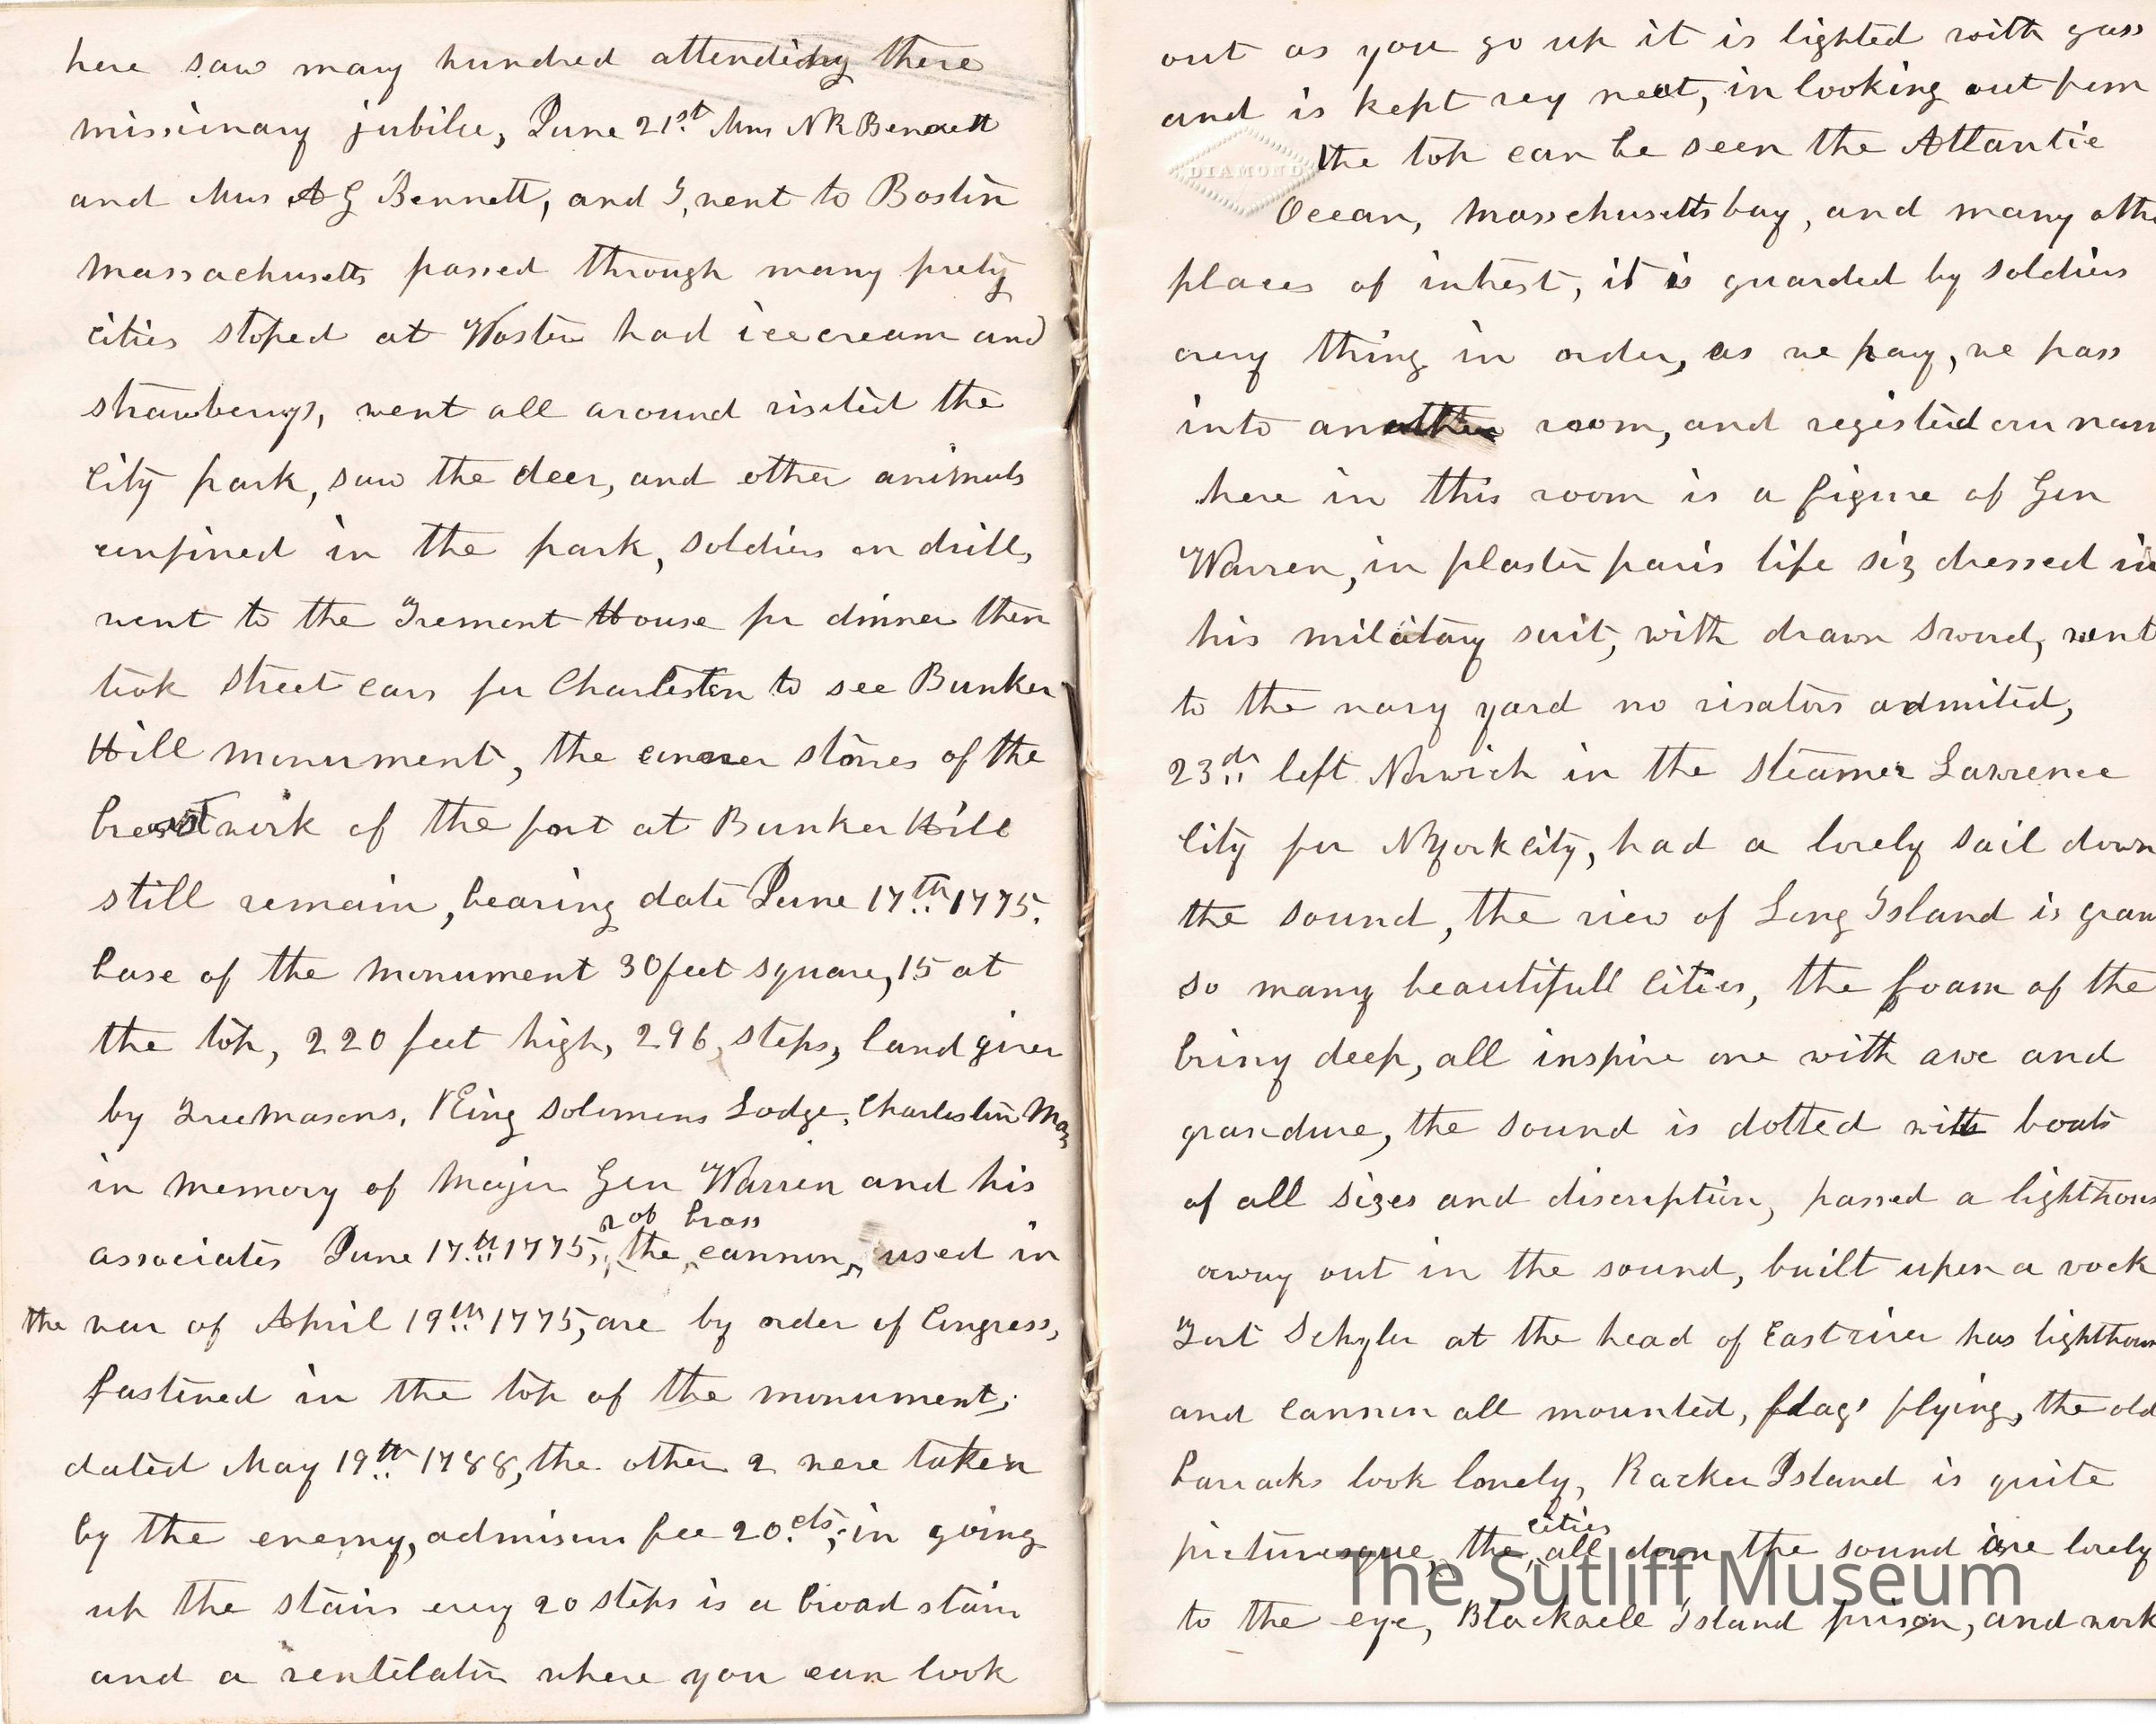 here saw many hundred attending there
missionary jubilee, June 21st Mrs N R Bennett
and Mrs A G Bennett, and I, went to Boston
Massachusetts passed through many prety
cities stoped at Woster had icecream and
strawberrys, went all around visited the
City park, saw the deer, and other animals
confined in the park, soldiers on drill,
went to the Tremont House for dinner then
took street cars for Charleston to see Bunker
Hill monument, the corner stones of the
brestwork of the fort at Bunker Hill
still remain, bearing date June 17th 1775.
base of the monument 30 feet square, 15 at
the top, 220 feet high, 296, steps, land given
by Freemasons, King Solomons Lodge, Charleston Mas
in memory of Major Gen Warren and his
2 of brass
associates June 17th 1775, the cannon, used in
the war of April 19th 1775, are by order of Congress,
fastened in the top of the monument,
dated May 19th 1788, the other 2 were taken
by the enemy, admision fee 20 cts, in going
up the stairs every 20 steps is a broad stair
and a ventilator where you can look
out as you go up it is lighted with gass
and is kept vey neat, in looking out from
DIAMOND
the top can be seen the Atlantic
Ocean, Masschusetts bay, and many othe
places of intrest, it is guarded by soldiers
every thing in order, as we pay, we pass
into another room, and registerd our nam
here in this room is a figure of Gen
Warren, in plaster paris life siz dressed in
his military suit, with drawn sword, went
to the navy yard no visators admited,
23d left Norwich in the steamer Lawrence
City for N York City, had a lovely sail down
the sound, the view of Long Island is gran
so many beautifull Cities, the foam of the
briny deep, all inspire one with awe and
grandure, the sound is dotted with boats
of all sizes and discription, passed a lighthous
away out in the sound, built upon a rock
Fort Schyler at the head of East river has lighthous
and cannon all mounted, flags flying, the old
barracks look lonely, Racker Island is quite
cities
picturesque, the all down the sound are lovely
to the eye, Blackwell Island prison, and work
The Sutliff Museum